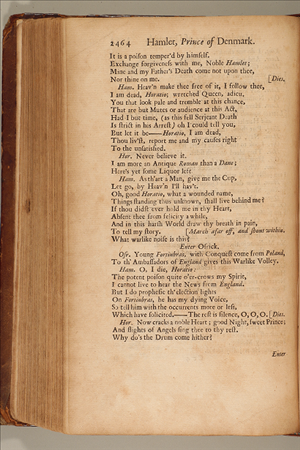 2464 Hamlet, Prince of Denmark.
It is a poison temper'd by himself.
Exchange forgiveness with me, Noble Hamlet;
Mine and my Father's Death come not upon thee,
Nor thine on me. [Dies.
Ham. Heav'n make thee free of it, I follow thee,
I am dead, Horatio; wretched Queen, adieu,
You that look pale and tremble at this chance,
That are but Mutes or audience at this Act,
Had I but time, (as this fell Serjeant Death
Is strict in his Arrest) oh I could tell you,
But let it be—— Horatio, I am dead,
Thou liv'st, report me and my causes right
To the unsatisfied.
Hor. Never believe it.
I am more an Antique Roman than a Dane;
Here's yet some Liquor left
Ham. As th'art a Man, give me the Cup,
Let go, by Heav'n I'll hav't.
Oh, good Horatio, what a wounded name,
Things standing thus unknown, shall live behind me!
If thou didst ever hold me in thy Heart,
Absent thee from felicity a while,
And in this harsh World draw thy breath in pain,
To tell my story. [March afar off, and shout within.
What warlike noise is this?
Enter Osrick.
Osr. Young Fortinbras, with Conquest come from Poland,
To th' Ambassadors of England gives this Warlike Volley.
Ham. O, I die, Horatio:
The potent poison quite o'er-crows my Spirit,
I cannot live to hear the News from England.
But I do prophesie th'election lights
On Fortinbras, he has my dying Voice,
So tell him with the occurrents more or less,
Which have solicited.——The rest is silence, O, O, O. [Dies.
Hor. Now cracks a noble Heart; good Night, sweet Prince;
And flights of Angels sing thee to thy rest.
Why do's the Drum come hither?
Enter